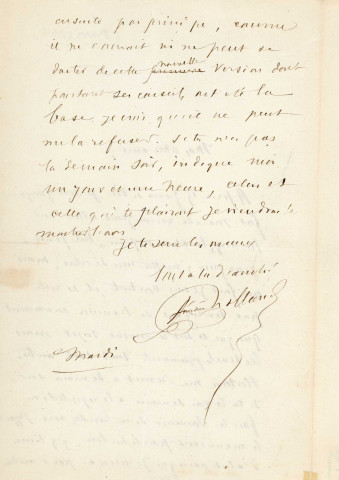 ensuite par principe, comme
il ne connait ni ne peut se
douter de cette nouvelle version dont
pourtant ses conseils ont été la
base je crois qu'il ne peut
me la refuser. Si tu n'es pas
là demain soir, indique moi
un jour et une heure, celui et
celle qui te plairont je viendrai
Je te serre les mains
tout à toi d'amitié
Mardi